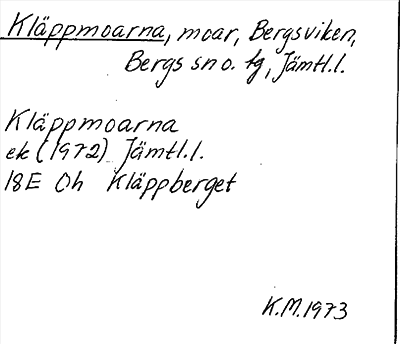 Kläppmoarna, moar, Bergsviken,
Bergs sn o. tg, Jämtl.l.
Kläppmoarna
ek (1972) Jämtl.l.
18E Oh Kläppberget
K.M.1973